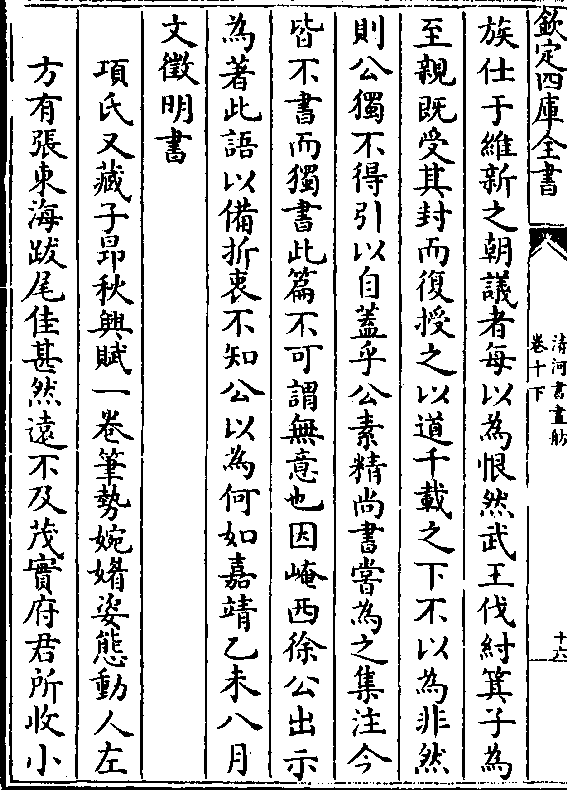 欽定四庫全書
清河書畫舫
卷十下
十六
族仕于維新之朝議者每以為恨然武王伐紂箕子為
至親既受其封而復授之以道千載之下不以為非然
則公獨不得引以自蓋乎公素精尚書嘗為之集注今
皆不書而獨書此篇不可謂無意也因崦西徐公出示
為著此語以備折衷不知公以為何如嘉靖乙未八月
文徵明書
項氏又藏子昂秋興賦一卷筆勢婉媠姿態動人左
方有張東海跋尾佳甚然遠不及茂實府君所收小